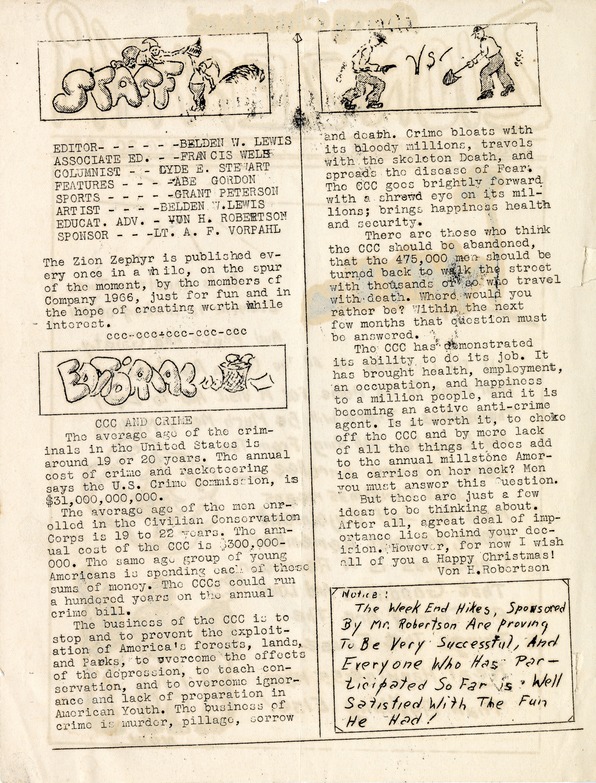 STAFF
EDITOR- - - - - -BELDEN W. LEWIS
ASSOCIATE ED. - -FRANCIS WELB
COLUMNIST - - CLYDE E. STEWART
FEATURES - - - -ABE GORDON
SPORTS - - - - -GRANT PETERSON
ARTIST - - -BELDEN W.LEWIS
EDUCAT. ADV. - VON H. ROBERTSON
SPONSOR - - -LT. A. F. VORPAHL
The Zion Zephyr is published ev-
ery once in a while, on the spur
of the moment, by the members of
Company 1966, just for fun and in
the hope of creating worth while
interest.
ccc-ccc-ccc-ccc-ccc
EDITORIAL
CCC AND CRIME
The average age of the crim-
inals in the United States is
around 19 or 20 years. The annual
cost of crime and racketeering
says the U.S. Crime Commission, is
$31,000,000,000.
The average age of the men enr-
olled in the Civilian Conservation
Corps is 19 to 22 years. The ann-
ual cost of the CCC is $300,000-
000. The same age group of young
Americans is spending each of these
sums of money. The CCCs could run
a hundred years on the annual
crime bill.
The business of the CCC is to
stop and to prevent the exploit-
ation of America's forests, lands,
and Parks, to overcome the effects
of the depression, to teach con-
servation, and to overcome ignor-
ance and lack of preparation in
American Youth. The business of
crime is murder, pillage, sorrow
VS
and death. Crime bloats with
its bloody millions, travels
with the skeleton Death, and
spreads the disease of Fear.
The CCC goes brightly forward
with a shrewd eye on its mil-
lions; brings happiness health
and security.
There are those who think
the CCC should be abandoned,
that the 475,000 men should be
turned back to walk the street
with thousands of so who travel
with death. Where would you
rather be? Within the next
few months that question must
be answered.
The CCC has demonstrated
its ability to do its job. It
has brought health, employment,
an occupation, and happiness
to a million people, and it is
becoming an active anti-crime
agent. Is it worth it, to choke
off the CCC and by mere lack
of all the things it does add
to the annual millstone Amer-
ica carries on her neck? Men
you must answer this Question.
But these are just a few
ideas to be thinking about.
After all, agreat deal of imp-
ortance lies behind your dec-
ision. However, for now I wish
all of you a Happy Christmas!
Von H.Robertson
Notice:
The Week End Hikes, Sponsored
By Mr. Robertson Are proving
To Be Very Successful, And
Everyone Who Has Par-
ticipated So Far is Well
Satisfied With The Fun
He Had!